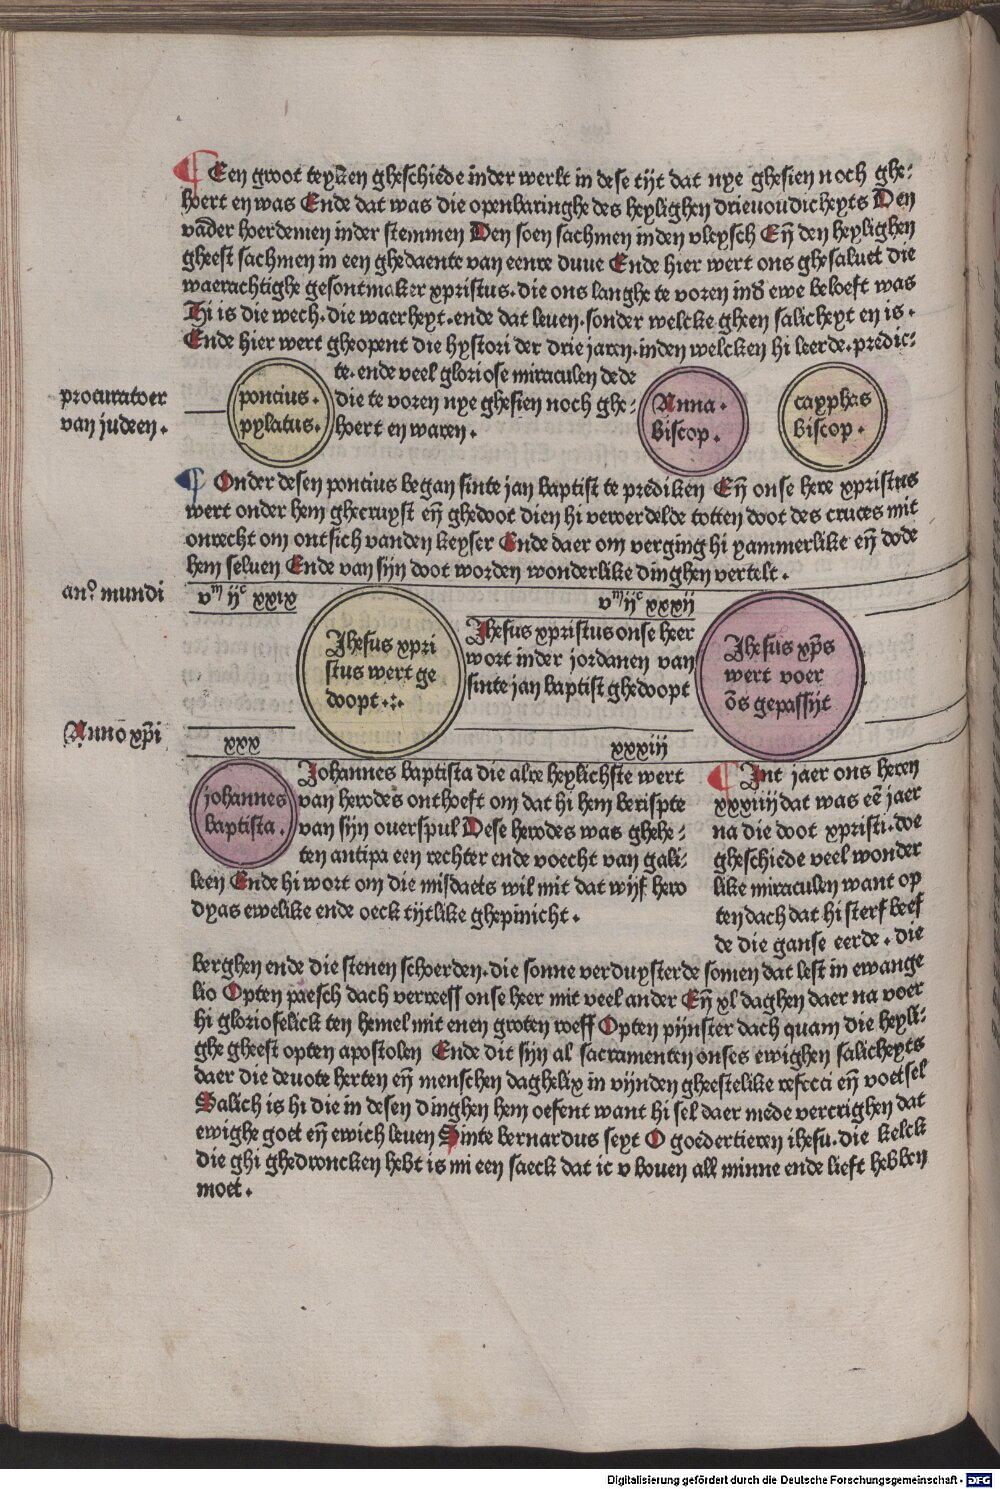 Een groot teyken gheschiede inder werlt in dese tijt dat nye ghesien noch ghe:
hoert en was Ende dat was die openbaringhe des heylighen drieuoudicheyts Den
vader hoerdemen inder stemmen Den soen sachmen inden vleysch Eñ den heylighen
gheest sachmen in een ghedaente van eenre duue Ende hier wert ons ghesaluet die
waerachtighe gesontmaker xpristus. die ons langhe te voren ind̄ ewe beloeft was
Hi is die wech. die waerheyt. ende dat leuen. sonder welcke gheen salicheyt en is.
Ende hier wert gheopent die hystori der drie jaren. inden welcken hi leerde. predic:
te. ende veel gloriose miraculen dede
die te voren nye ghesien noch ghe:
hoert en waren.
procuratoer
van judeen.
poncius.
pylatus.
Anna.
biscop.
cayphas
biscop.
Onder desen poncius began sinte jan baptist te prediken Eñ onse here xpristus
wert onder hem ghecruyst eñ ghedoot dien hi veroerdelde totten doot des cruces mit
onrecht om ontsich vanden keyser Ende daer om verging hi yammerlike eñ dode
hem seluen Ende van sijn doot worden wonderlike dinghen vertelt.
anº mundi
vᵐ ijᶜ xxix
vᵐ ijᶜ xxxij
Jhesus xpri
stus wert ge
doopt
Jhesus xpristus onse heer
wort inder jordanen van
sinte jan baptist ghedoopt
Jhesus xp̄s
wert voer
ōs gepassijt
Anno xp̄i
xxx
xxxiij
johannes
baptista.
Johannes baptista die alre heylichste wert
van herodes onthoeft om dat hi hem berispte
van sijn ouerspul Dese herodes was ghehe:
ten antipa een rechter ende voecht van gali:
leen Ende hi wort om die misdaets wil mit dat wijf hero
dyas ewelike ende oeck tijtlike ghepinicht.
Int jaer ons heren
xxxiiij dat was eē jaer
na die doot xpristi. doe
gheschiede veel wonder
like miraculen want op
ten dach dat hi sterf beef
de die ganse eerde. die
berghen ende die stenen schoerden. die sonne verduysterde somen dat lest in ewange
lio Opten paesch dach verrees onse heer mit veel ander Eñ xl daghen daer na voer
hi gloriofelick ten hemel mit enen groten roeff Opten pijnster dach quam die heyli:
ghe gheest opten apostolen Ende dit sijn al sacramenten onses ewighen salicheyts
daer die deuote herten eñ menschen daghelix in vijnden gheestelike refecci eñ voetsel
Salich is hi die in desen dinghen hem oefent want hi sel daer mede vercrighen dat
ewighe goet eñ ewich leuen Sinte bernardus seyt O goedertieren ihesu. die kelck
die ghi ghedroncken hebt is mi een saeck dat ic v bouen all minne ende lieft hebben
moet.
Digitalisierung gefördert durch die Deutsche Forschungsgemeinschaft - DFG